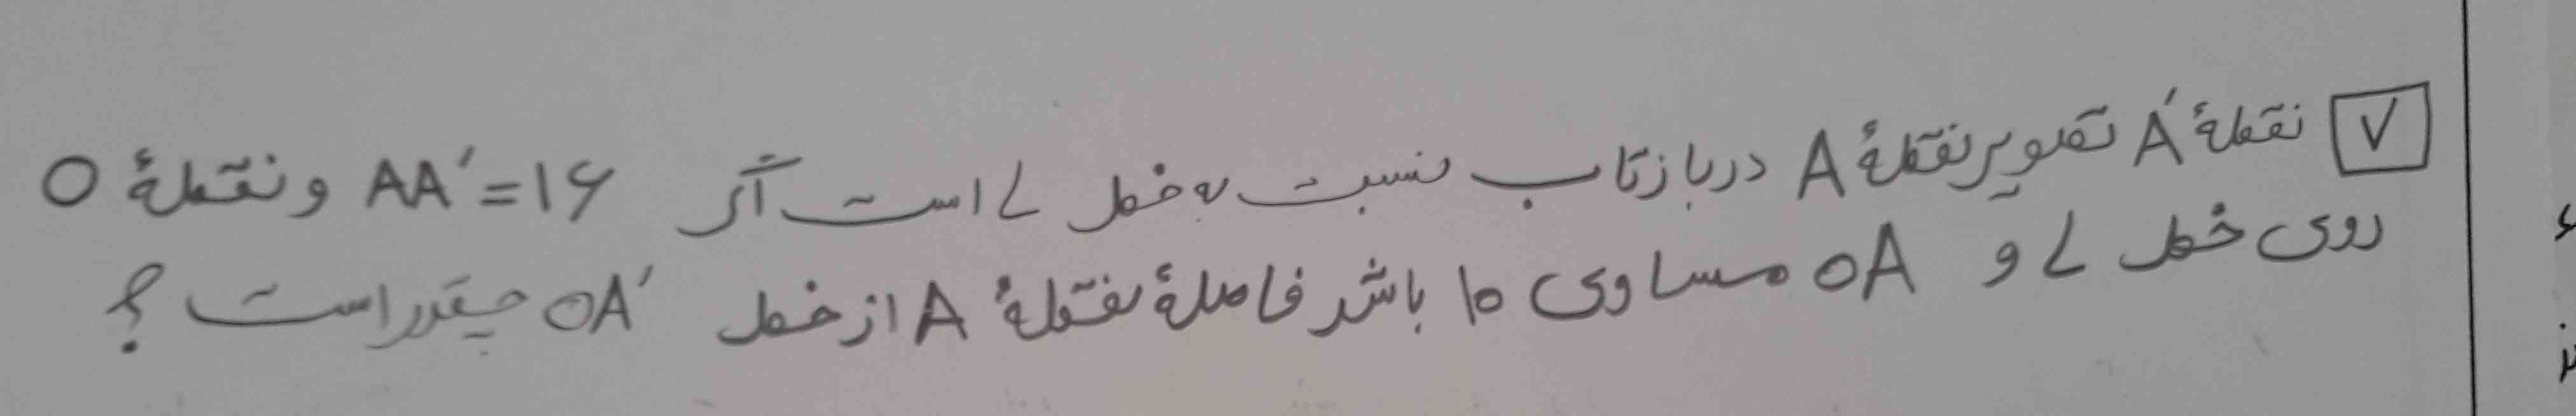 ۷ نقطهٔ A′ تصویر نقطهٔ A در بازتاب نسبت به خط L است اگر AA′=۱۶ و نقطهٔ O
روی خط L و OA مساوی ۱۰ باشد فاصلهٔ نقطهٔ A از خط OA′ چقدر است ؟